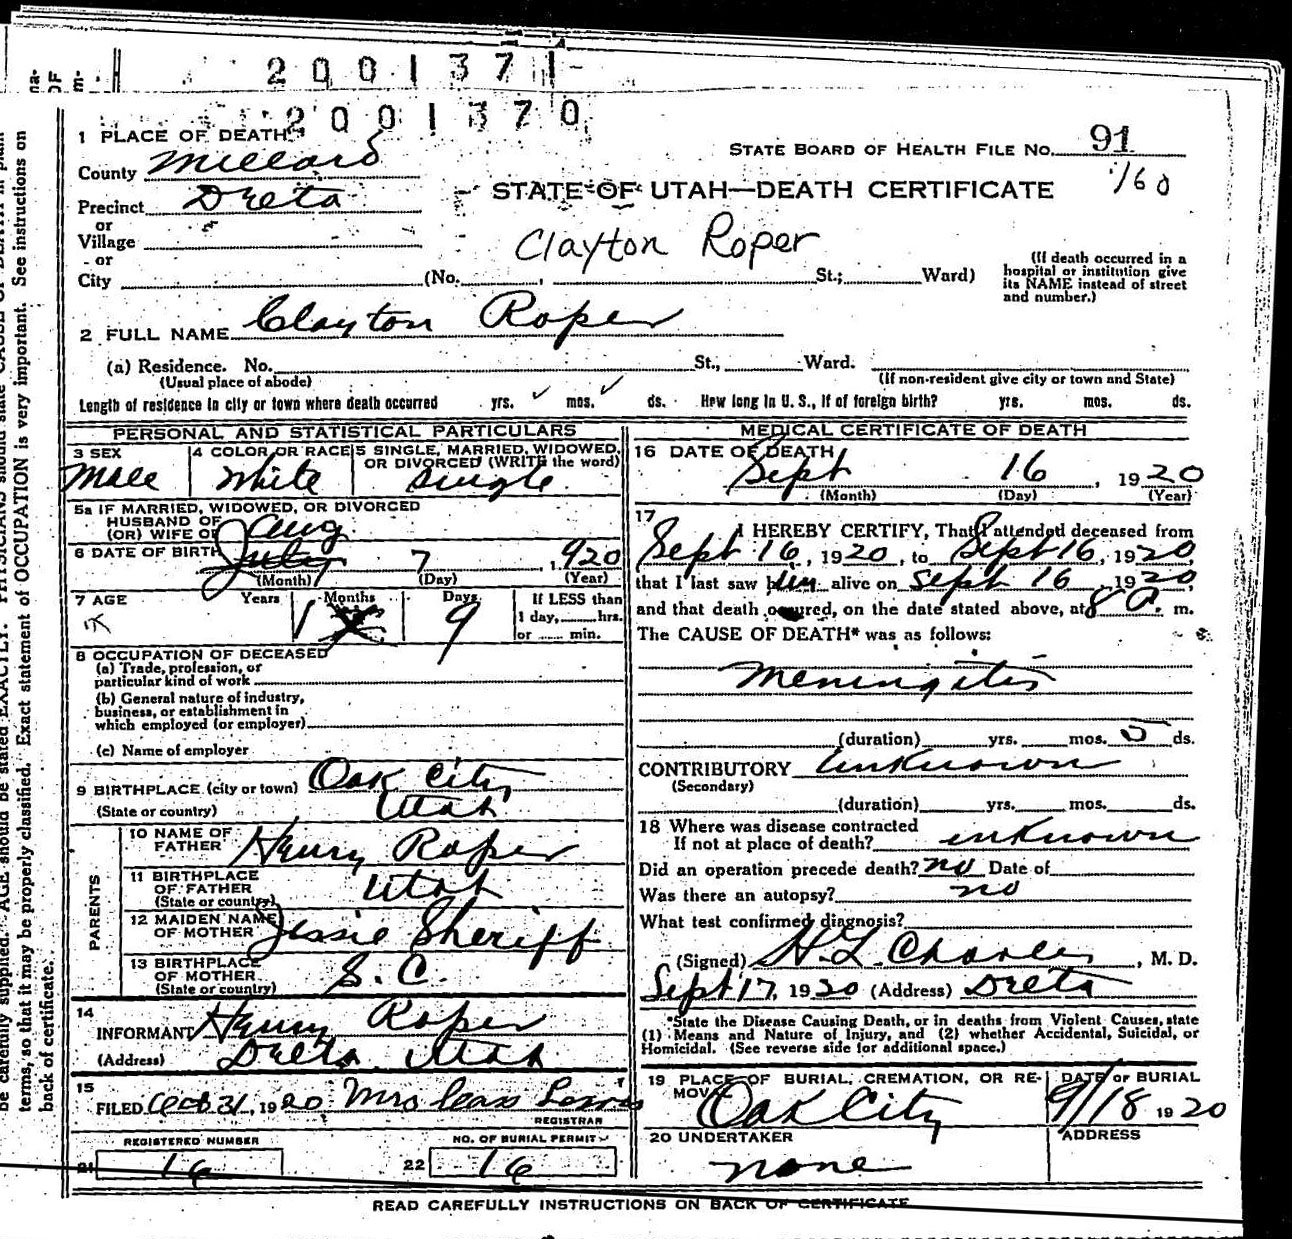 2001371
2001370
1 PLACE OF DEATH
County Millard
STATE BOARD OF HEALTH FILE No. 91
160
Precinct Delta
STATE OF UTAH—DEATH CERTIFICATE
or
Village
or
Clayton Roper
City (No. St.; Ward)
(If death occurred in a
hospital or institution give
its NAME instead of street
and number.)
2 FULL NAME Clayton Roper
(a) Residence. No. St., Ward.
(Usual place of abode) (If non-resident give city or town and State)
Length of residence in city or town where death occurred yrs. mos. ds. How long in U. S., if of foreign birth? yrs. mos. ds.
PERSONAL AND STATISTICAL PARTICULARS
3 SEX
Male
4 COLOR OR RACE
White
5 SINGLE, MARRIED, WIDOWED,
OR DIVORCED (WRITE the word)
Single
5a IF MARRIED, WIDOWED, OR DIVORCED
HUSBAND OF
(OR) WIFE OF
Aug
6 DATE OF BIRTH July 7, 1920
(Month) (Day) (Year)
7 AGE Years Months Days If LESS than
1 9 1 day, hrs.
or min.
8 OCCUPATION OF DECEASED
(a) Trade, profession, or
particular kind of work
(b) General nature of industry,
business, or establishment in
which employed (or employer)
(c) Name of employer
9 BIRTHPLACE (city or town) Oak City
(State or country) Utah
PARENTS
10 NAME OF
FATHER Henry Roper
11 BIRTHPLACE
OF FATHER
(State or country) Utah
12 MAIDEN NAME
OF MOTHER Jessie Sheriff
13 BIRTHPLACE
OF MOTHER
(State or country) S. C.
14
INFORMANT Henry Roper
(Address) Delta, Utah
15
FILED Oct 31, 1920 Mrs
REGISTRAR
REGISTERED NUMBER NO. OF BURIAL PERMIT
21 16 22 16
MEDICAL CERTIFICATE OF DEATH
16 DATE OF DEATH
Sept 16, 1920
(Month) (Day) (Year)
17
I HEREBY CERTIFY, That I attended deceased from
Sept 16, 1920, to Sept 16, 1920,
that I last saw him alive on Sept 16, 1920,
and that death occured, on the date stated above, at 8 A. m.
The CAUSE OF DEATH* was as follows:
Meningitis
(duration) yrs. mos. 5 ds.
CONTRIBUTORY Unknown
(Secondary)
(duration) yrs. mos. ds.
18 Where was disease contracted
If not at place of death? unknown
Did an operation precede death? no Date of
Was there an autopsy? no
What test confirmed diagnosis?
(Signed) H. L. Charles, M. D.
Sept 17, 1920 (Address) Delta
*State the Disease Causing Death, or in deaths from Violent Causes, state
(1) Means and Nature of Injury, and (2) whether Accidental, Suicidal, or
Homicidal. (See reverse side for additional space.)
19 PLACE OF BURIAL, CREMATION, OR RE-
MOVAL Oak City
DATE OF BURIAL
9/18 1920
20 UNDERTAKER
none
ADDRESS
READ CAREFULLY INSTRUCTIONS ON BACK OF CERTIFICATE
be carefully supplied. AGE should be stated EXACTLY. PHYSICIANS should state CAUSE OF DEATH in plain
terms, so that it may be properly classified. Exact statement of OCCUPATION is very important. See instructions on
back of certificate.